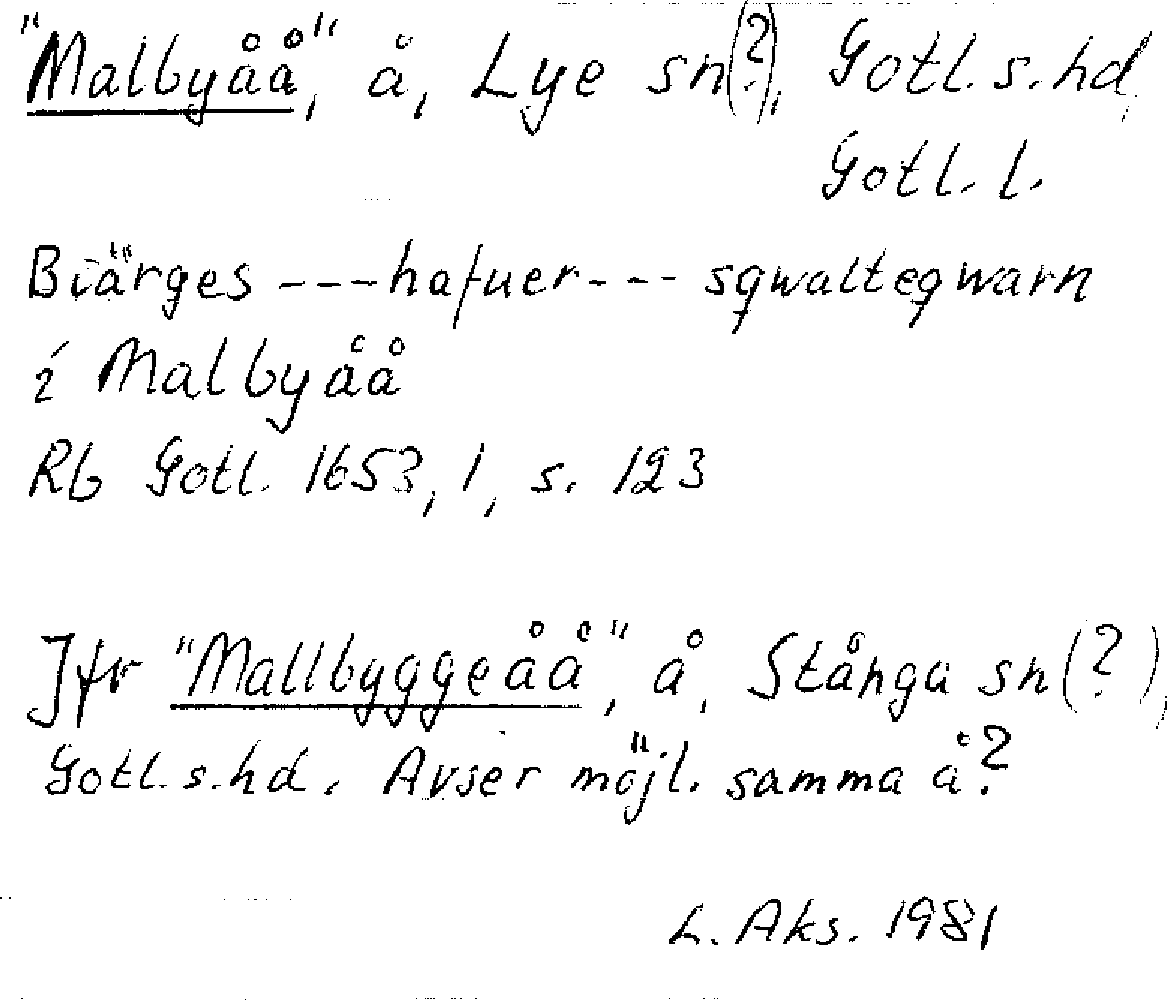 "Malbyåå", å, Lye sn(?), Gotl. s. hd,
Gotl. l.
Biärges ---hafuer--- sqwalteqwarn
i Malbyåå
Rb Gotl. 1653, 1, s. 123
Jfr "Mallbyggeåå", å, Stånga sn(?),
Gotl. s. hd. Avser möjl. samma å?
L. Aks. 1981